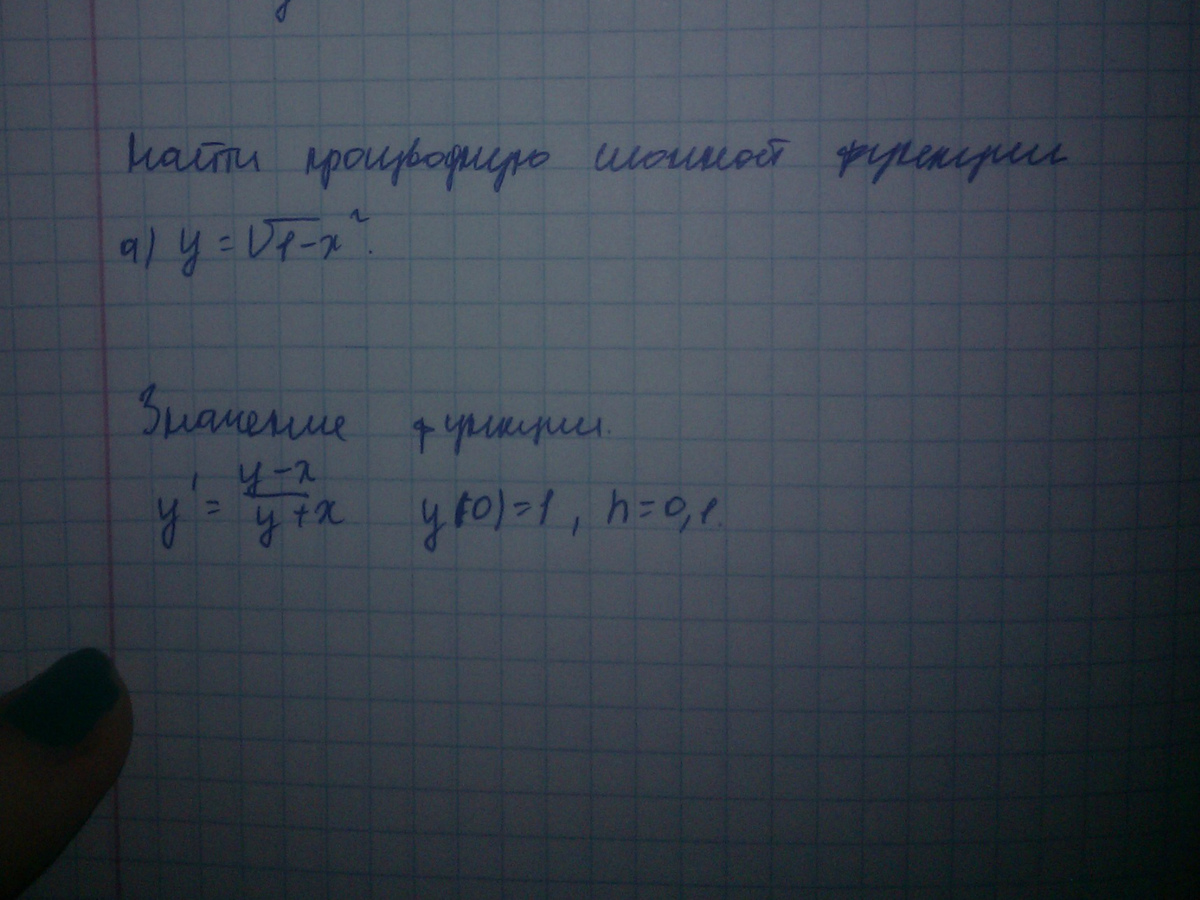 Найти производную сложной функции
а) y = √1-x².
Значение функции.
y' = (y-x)/(y+x) y(0)=1, h=0,1.